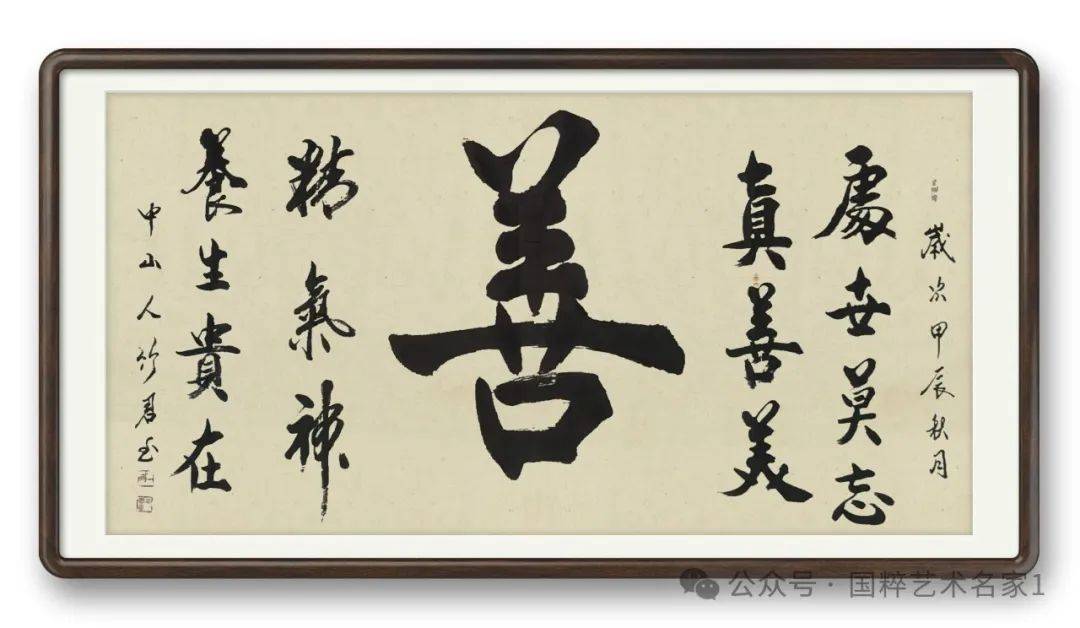 歲次甲辰秋月
處世莫忘
真善美
善
養生貴在
精氣神
中山人竹君
公众号 · 国粹艺术名家1